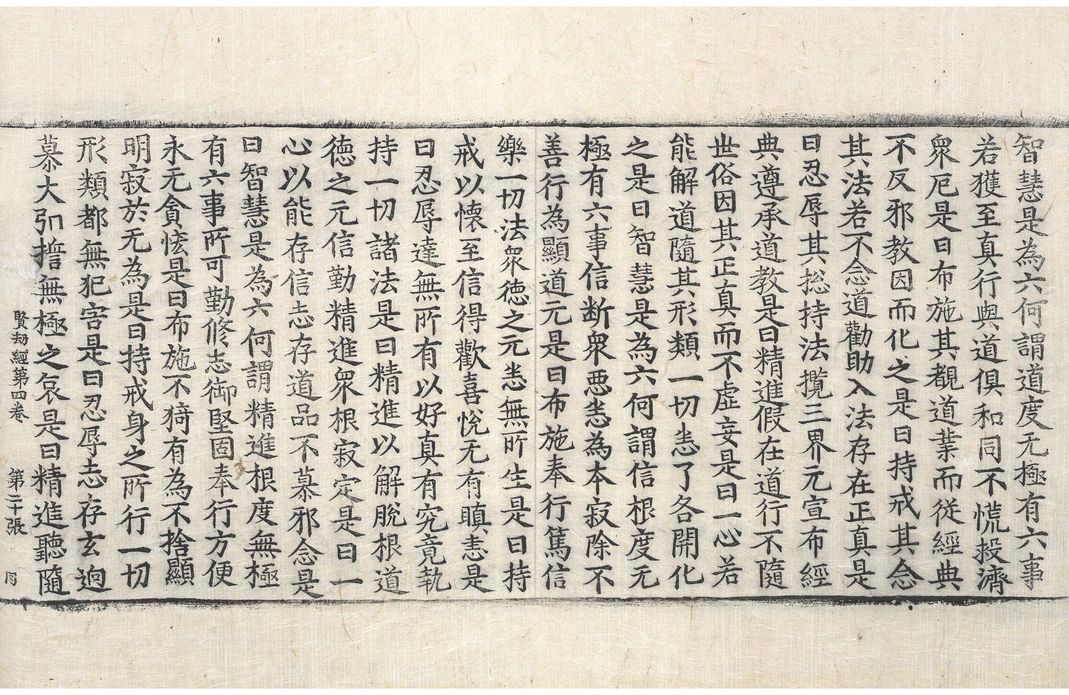 智慧是為六何謂道度无極有六事
若獲至真行與道俱和同不慌投濟
衆厄是曰布施其覩道業而従經典
不反邪教因而化之是曰持戒其念
其法若不念道勸助入法存在正真是
曰忍辱其捴持法攬三界元宣布經
典遵承道教是曰精進假在道行不隨
世俗因其正真而不虛妄是曰一心若
能解道隨其形類一切悉了各開化
之是曰智慧是為六何謂信根度无
極有六事信断衆悪悉為本寂除不
善行為顯道元是曰布施奉行篤信
樂一切法衆徳之元悉無所生是曰持
戒以懷至信得歡喜悅无有瞋恚是
曰忍辱達無所有以好真有究竟執
持一切諸法是曰精進以解脫根道
徳之元信勤精進衆根寂定是曰一
心以能存信志存道品不慕邪念是
曰智慧是為六何謂精進根度無極
有六事所可勤修志御堅固奉行方便
永无貪悋是曰布施不猗有為不捨顯
明寂於无為是曰持戒身之所行一切
形類都無犯害是曰忍辱志存玄逈
慕大弘擔無極之哀是曰精進聽隨
賢劫經第四卷 第二十張 同